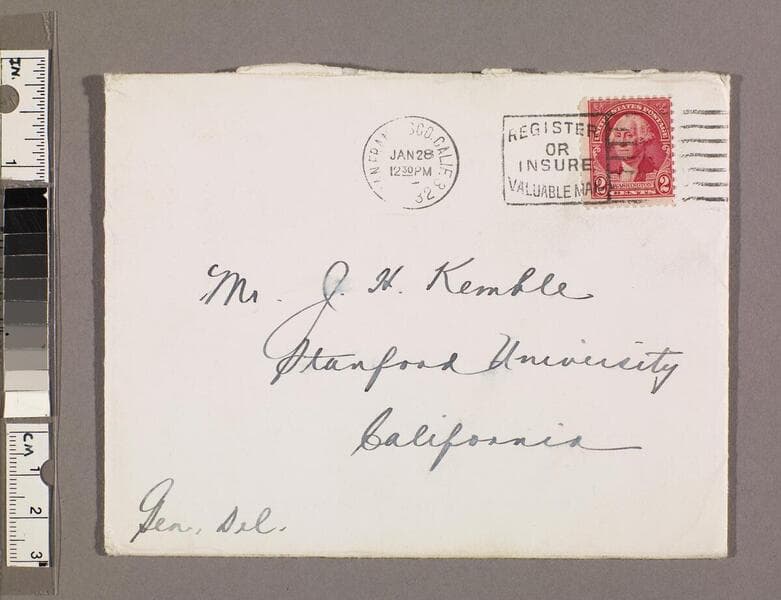 IN.
1
CM 1
2
3
SAN FRANCISCO, CALIF. 3
JAN 28
1230 PM
32
REGISTER
OR
INSURE
VALUABLE MAIL
UNITED STATES POSTAGE
WASHINGTON
2 CENTS 2
Mr. J. H. Kemble
Stanford University
California
Gen. Del.